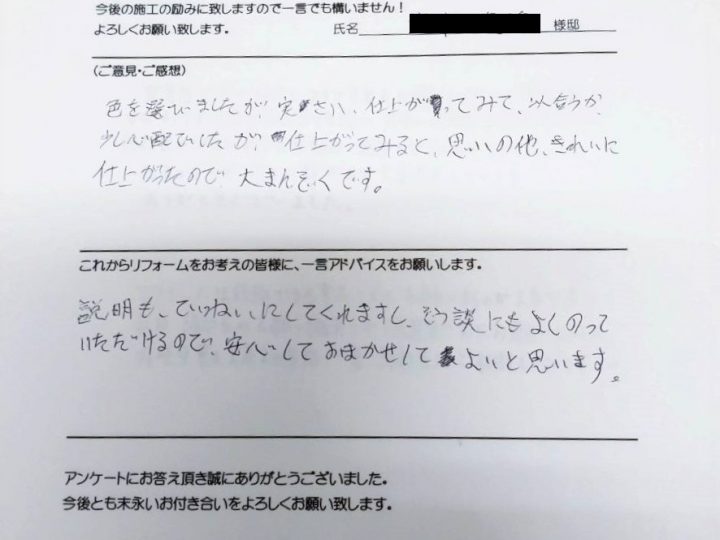 今後の施工の励みに致しますので一言でも構いません！
よろしくお願い致します。 氏名 様邸
（ご意見・ご感想）
色を選びましたが、実さい、仕上がってみて、似合うか
少し心配でしたが、仕上がってみると、思いの他、きれいに
仕上がったので、大まんぞくです。
これからリフォームをお考えの皆様に、一言アドバイスをお願いします。
説明も、ていねいにしてくれますし、そう談にもよくのって
いただけるので、安心しておまかせしてよいと思います。
アンケートにお答え頂き誠にありがとうございました。
今後とも末永いお付き合いをよろしくお願い致します。